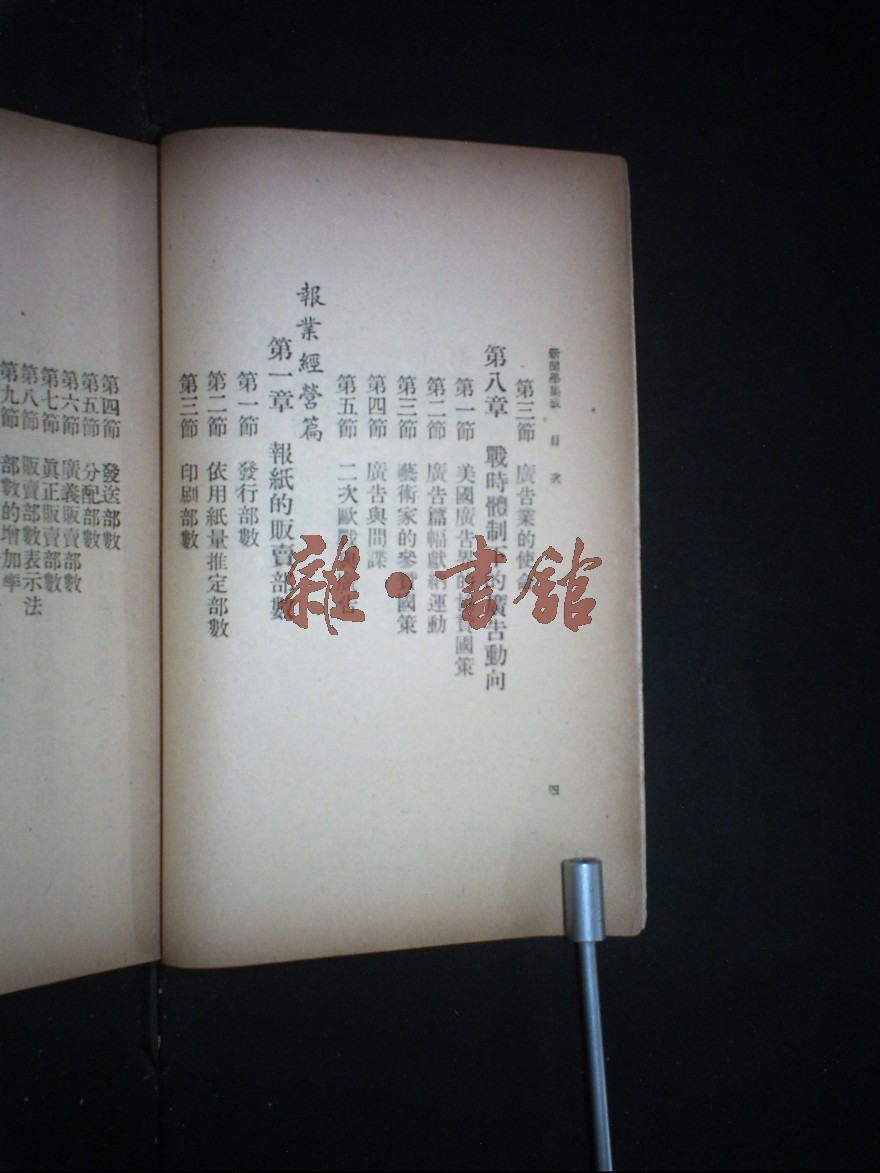 新聞學集成 目次
第三節 廣告業的使命
第八章 戰時體制下的廣告動向
第一節 美國廣告界的協贊國策
第二節 廣告篇幅獻納運動
第三節 藝術家的參贊國策
第四節 廣告與間諜
第五節 二次歐戰與廣告
報業經營篇
第一章 報紙的販賣部數
第一節 發行部數
第二節 依用紙量推定部數
第三節 印刷部數
四
第四節 發送部數
第五節 分配部數
第六節 廣義販賣部數
第七節 眞正販賣部數
第八節 販賣部數表示法
第九節 部數的增加率
雜·書館